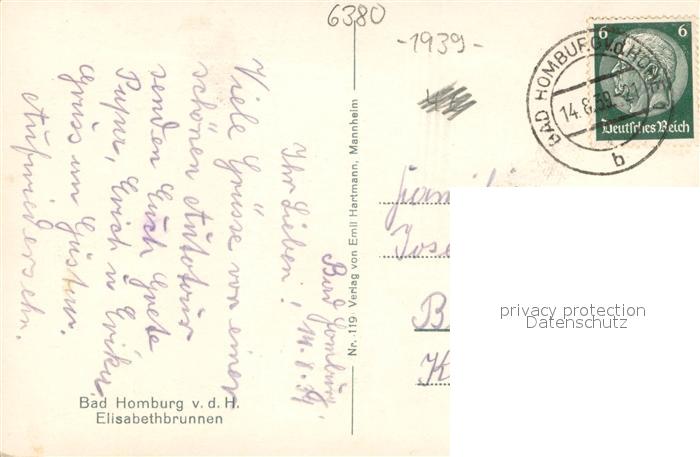 6380
-1939-
BAD HOMBURG v.d. HÖHE
14.8.39
b
6 6
Deutsches Reich
Bad Homburg
14.8.39.
Ihr Lieben!
Viele Grüsse von einer
schönen Autotour
senden Euch Grete
Erich u Erika.
Gruss an
Aufwiedersehn.
Nr. 119 Verlag von Emil Hartmann, Mannheim
Fami
Jose
B
K
privacy protection
Datenschutz
Bad Homburg v. d. H.
Elisabethbrunnen